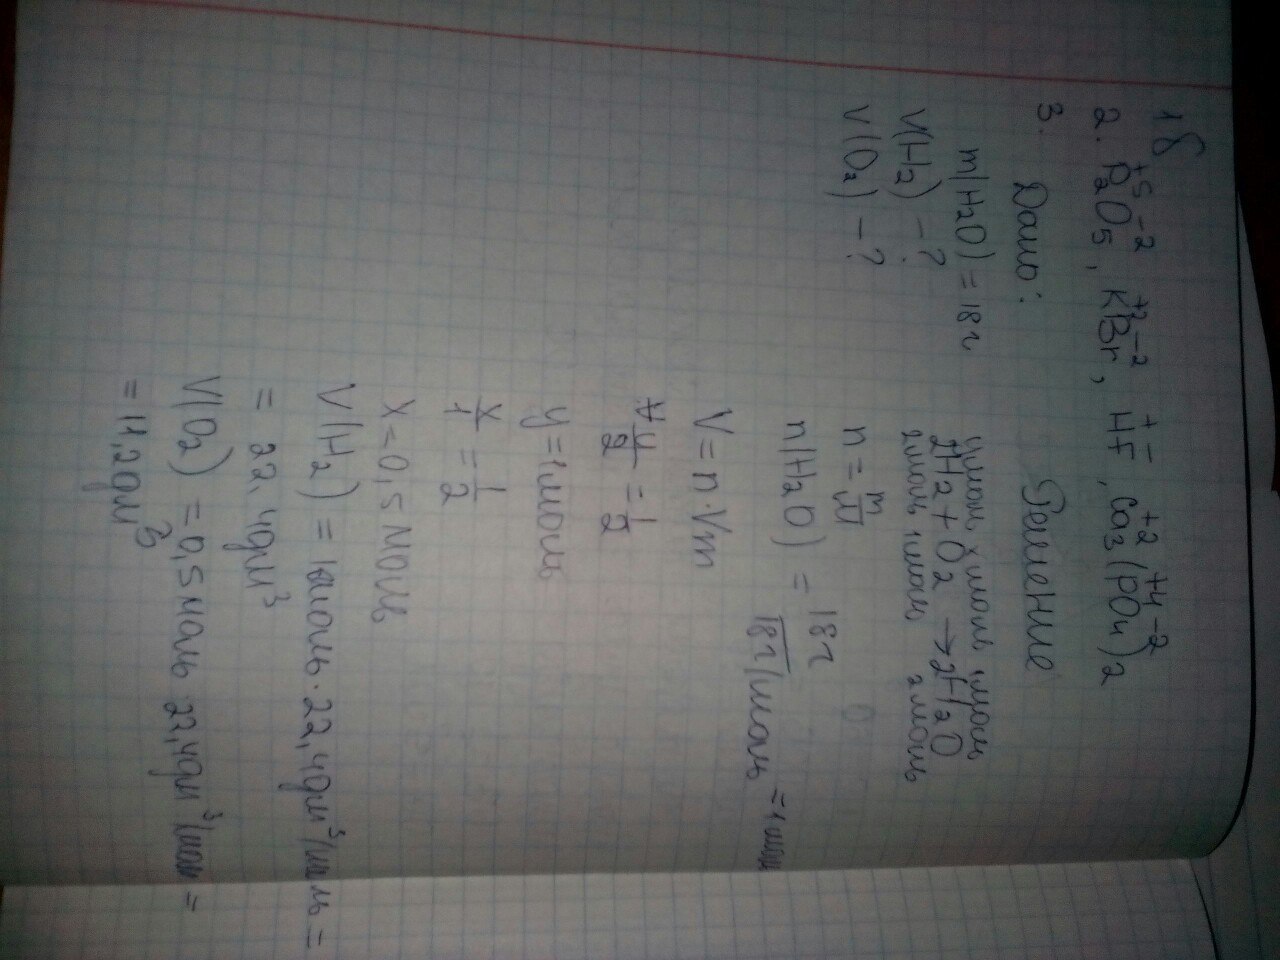 1б
2. P₂⁺⁵O₅⁻², K⁺²Br⁻², H⁺F⁻, Ca₃⁺²(P⁺⁴O₄⁻²)₂
3. Дано: Решение
m(H₂O) = 18г
V(H₂) – ?
V(O₂) – ?
y моль x моль 1 моль
2H₂ + O₂ → 2H₂O
2 моль 1 моль 2 моль
n = m/M
n(H₂O) = 18г / 18г/моль = 1 моль
V = n · Vm
y/2 = 1/2
y = 1 моль
x/1 = 1/2
x = 0,5 моль
V(H₂) = 1 моль · 22,4 дм³/моль =
= 22,4 дм³
V(O₂) = 0,5 моль 22,4 дм³/мол =
= 11,2 дм³